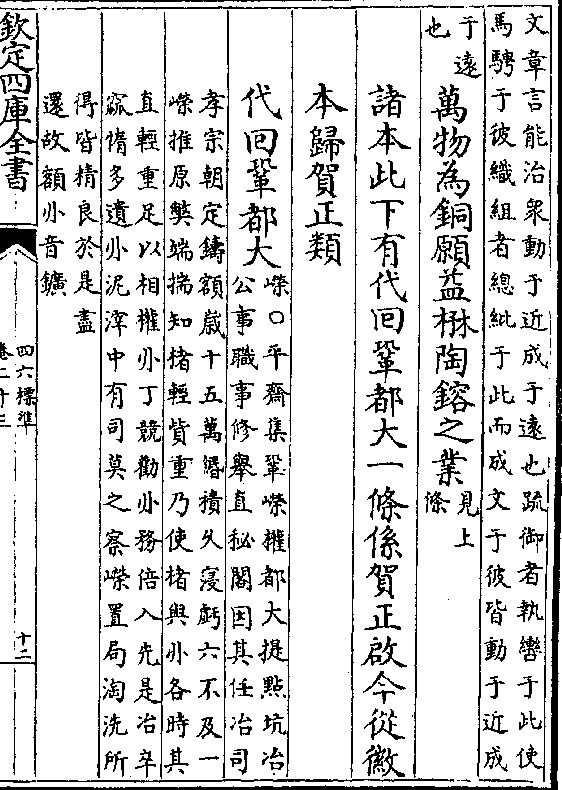 文章言能治衆動于近成于遠也䟽御者執轡于此使
馬騁于彼織組者總紕于此而成文于彼皆動于近成
于遠
也
萬物為銅願益楙陶鎔之業
見上
條
諸本此下有代回鞏都大一條係賀正啟今從徽
本歸賀正類
代回鞏都大
嶸〇平齋集鞏嶸擢都大提點坑冶
公事職事修舉直秘閣因其任冶司
孝宗朝定鑄額歲十五萬緡積久寖虧六不及一
嶸推原弊端揣知楮輕貲重乃使楮與卝各時其
直輕重足以相權卝丁競勸卝務倍入先是冶卒
窳惰多遺卝泥滓中有司莫之察嶸置局淘洗所
得皆精良於是盡
還故額卝音鑛
欽定四庫全書
四六標準
卷二十三
十二